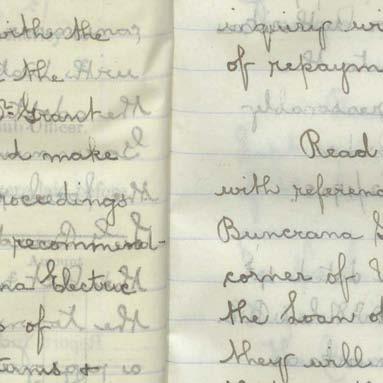 with the
the
Grant
make
roceedings
recommend-
na Electric
s of
tains &
inquiry w
of repaym
Read
with referenc
Buncrana
corner of
the Loan o
they will